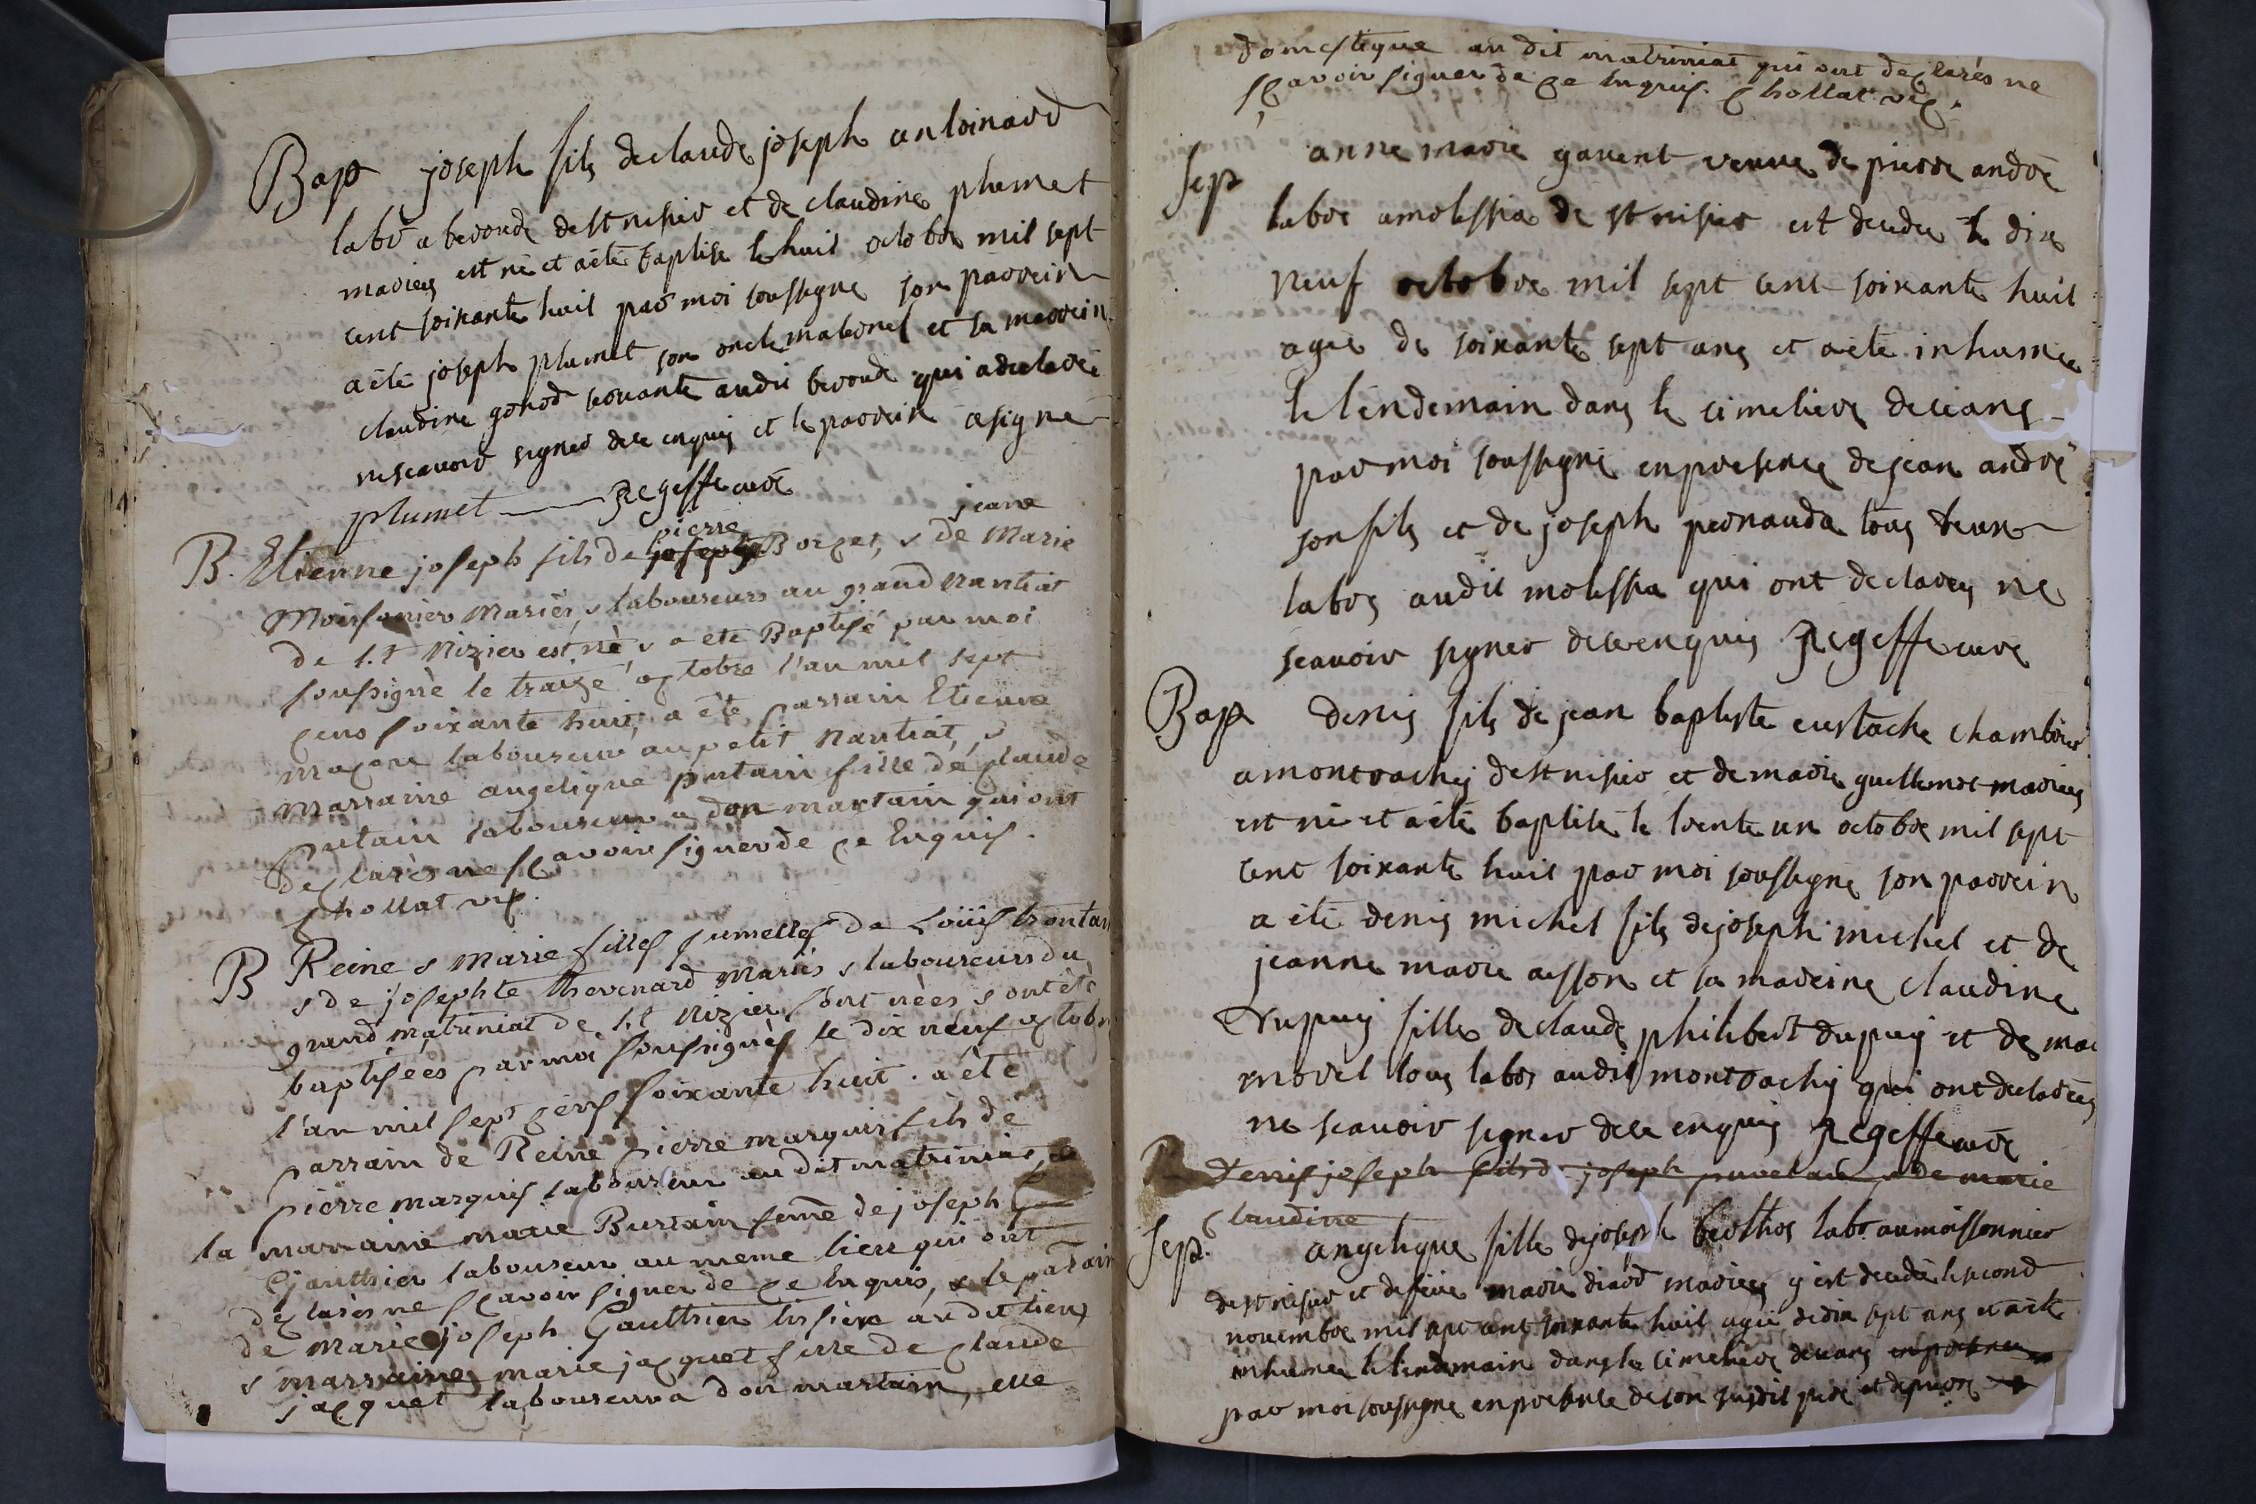 Bap joseph fils declaude joseph antoinard
labr a beroude dest nisier et de claudine plumet
mariez est né et aété baptise le huit octobre mil sept
cent soixante huit par moi soussigné son parrein
aété joseph plumet son oncle maternel et sa marrein
claudine gonod servante audit beroude qui adeclaré
nescavoir signer dece enquis et le parrein asigné
plumet regeffe curé
pierre jeane
B. Etienne joseph fils de joseph Borget, & de Marie
Moissonier Mariés, & laboureurs au grand Nantiat
de s.t Nizier est né, & a eté Baptisé par moi
soussigné le traize octobre l'an mil sept
cens soixante huit, a êté parrain Etienne
maçon laboureur au petit Nantiat, &
marraine angelique putain fille de claude
putain laboureur a don martain qui ont
declarés ne sçavoir signer de ce Enquis.
Chollat vic.
B Reine & marie filles jumelles de Loüis
& de josephte thevenard mariés & laboureurs du
grand matriniat de s.t Nizier sont nées & ont êté
baptisées par moi soussigné le dix neuf octobr
l'an mil sept cens soixante huit. a êté
parrain de Reine pierre marquis fils de
pierre marquis laboureur au dit matriniat, &
la marraine marie Burtain feme de joseph
Gauthier laboureur au meme lieu qui ont
declarés ne sçavoir signer de ce Enquis, & le parain
de Marie joseph Gauthier tisier au dit lieu
& marraine marie jacquet fille de claude
jacquet laboureur a don martain, elle
domestique au dit matriniat qui ont declarés ne
sçavoir signer de ce Enquis. Chollat vic.
Sep anne marie gavent veuve de pierre andré
labor amolissia de st nisier est decedee le dix
neuf octobre mil sept cent soixante huit
agée de soixante sept ans et aété inhumée
le lendemain dans le cimetiere deceans
par moi soussigné enpresence de jean andré
son fils et de joseph peonauda tous deux
labrs audit molissia qui ont declarez ne
scavoir signer dece enquis regeffe curé
Bap denis fils de jean baptiste eustache chambier
amontrachy dest nisier et de marie guillemot mariez
est né et aété baptisé le trente un octobre mil sept
cent soixante huit par moi soussigné son parrein
a été denis michel fils dejoseph michel et de
jeanne marie aisson et sa mareine claudine
dupuy fille declaude philibert dupuy et de mar
morel tous labrs audit montrachy qui ont declarez
ne scavoir signer dece enquis regeffe curé
Denis joseph fils d joseph & de marie
claudine
Sep. angelique fille dejoseph berthos labr aumoissonnier
dest nisier et defeue marie diard mariez y est decedée lesecond
novembre mil sept cent soixante huit agée dedix sept ans et aété
inhumée le lendemain dans le cimetiere deceans enpresence
par moi soussigné enpresence deson susdit pere et depierre